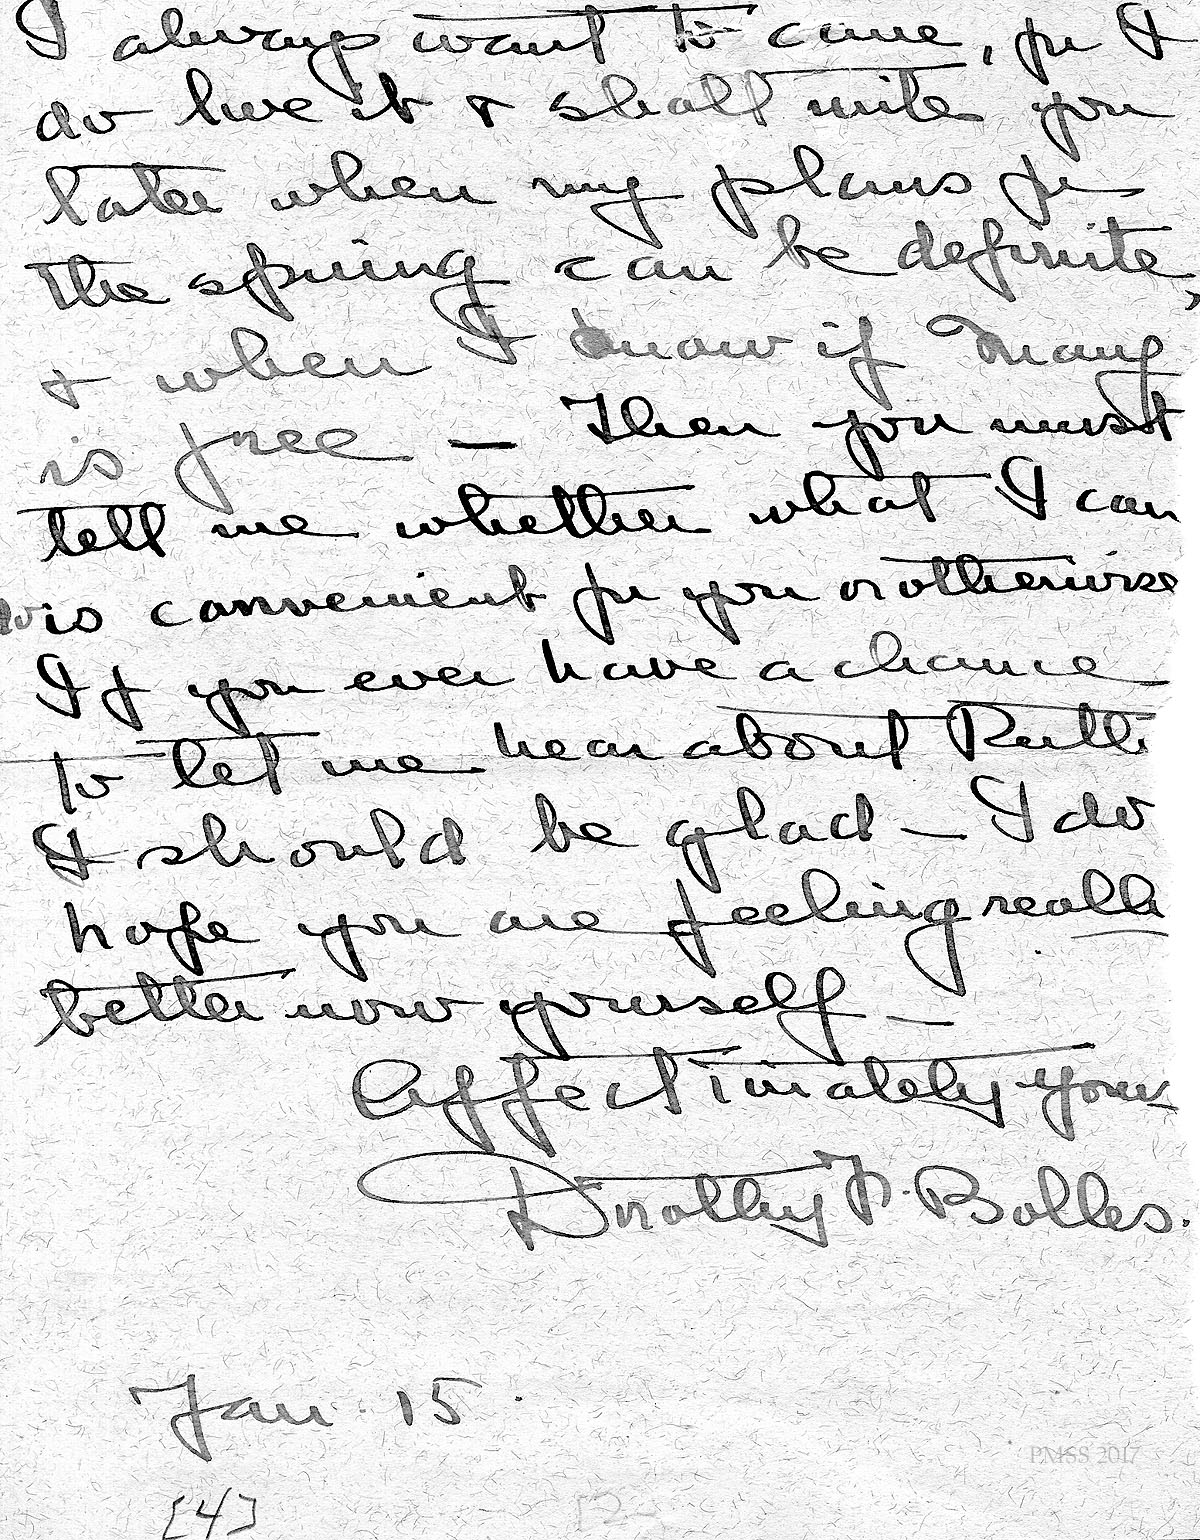 I always want to come, for I
do love it & shall write you
later when my plans for
the spring can be definite,
& when I know if Mary
is free — Then you must
tell me whether what I can
do is convenient for you or otherwise
If you ever have a chance
to let me hear about Ruth
I should be glad — I do
hope you are feeling really
better now yourself —
Affectionately yours
Dorothy F. Bolles.
Jan. 15.
PMSS 2017
[4]